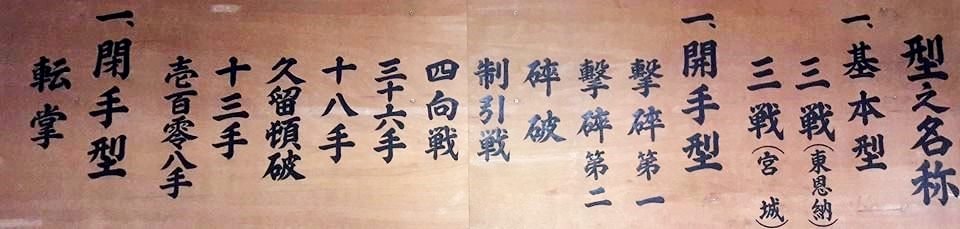 型之名称
一、基本型
三戦(東恩納)
三戦(宮城)
一、開手型
撃砕第一
撃砕第二
砕破
制引戦
四向戦
三十六手
十八手
久留頓破
十三手
壱百零八手
一、閉手型
転掌